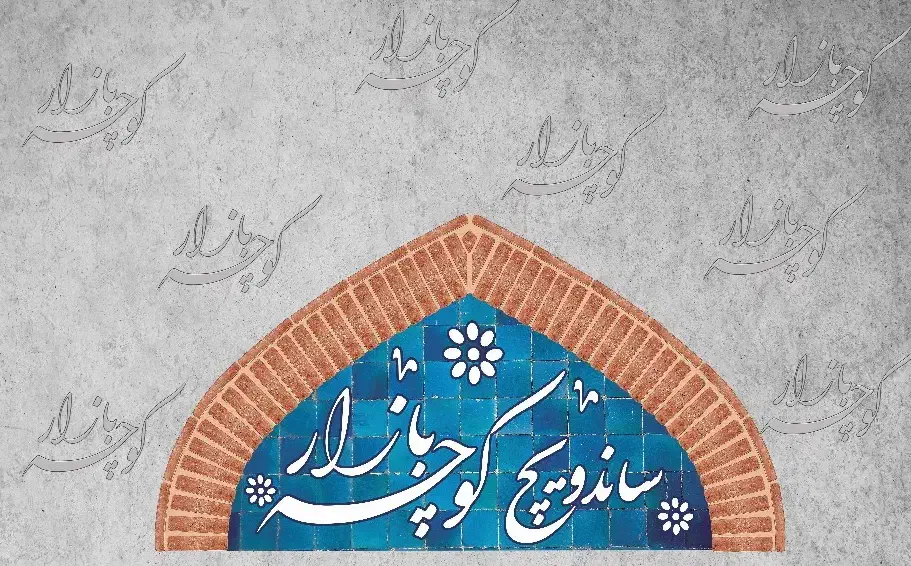 کوچه بازار
کوچه بازار
کوچه بازار
کوچه بازار
کوچه بازار
کوچه بازار
کوچه بازار
کوچه بازار
ساندویچ کوچه بازار